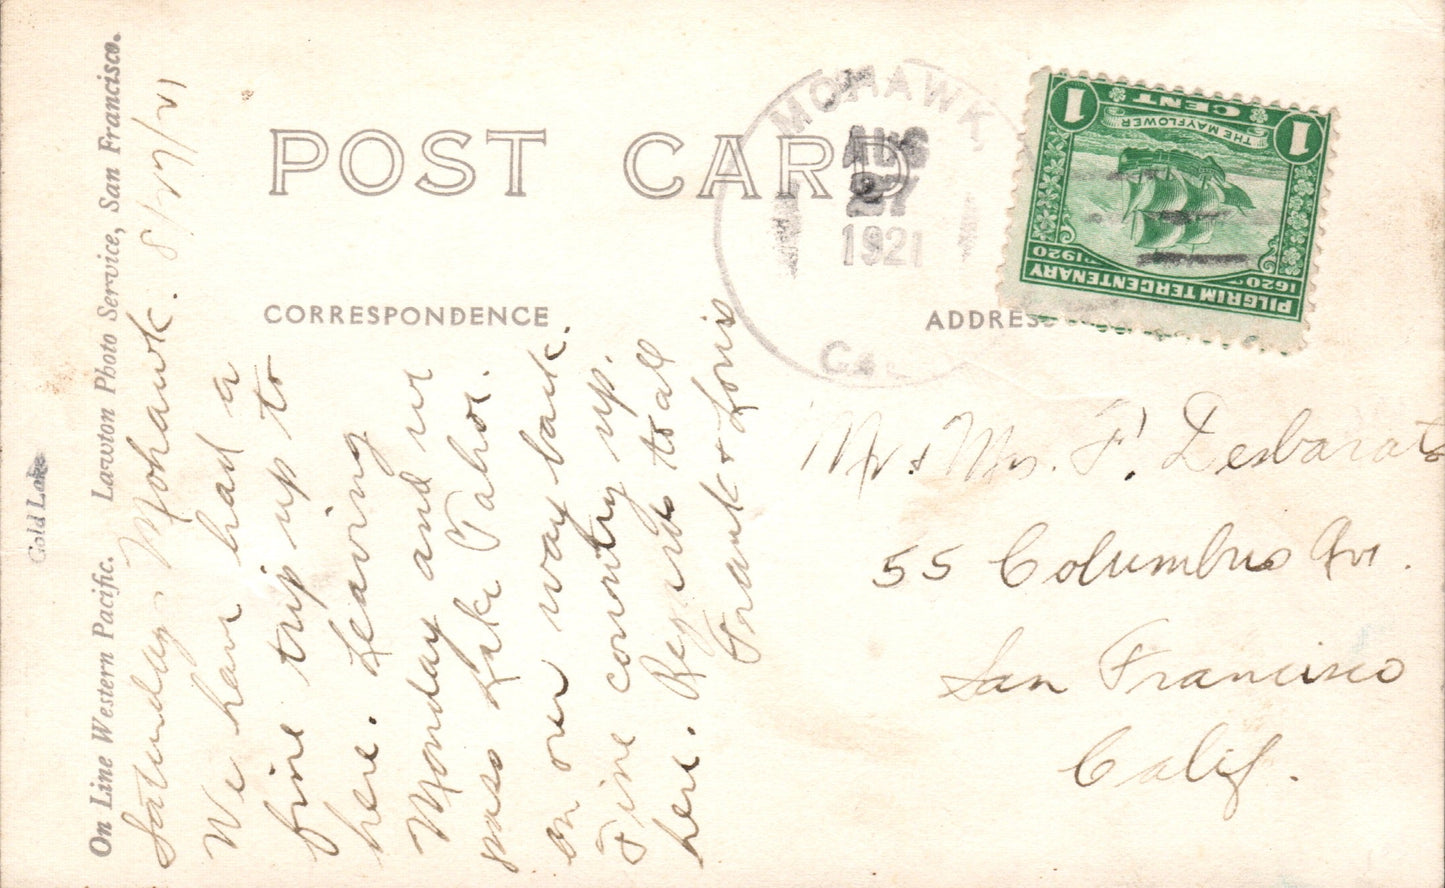 POST CARD
CORRESPONDENCE
ADDRESS
MOHAWK
AUG
27
1921
CAL
1 CENT 1
THE MAYFLOWER
1620 1920
PILGRIM TERCENTENARY
On Line Western Pacific. Lawton Photo Service, San Francisco.
Gold Lake
Saturday - Mohawk. 8/27/21
We have had a
fine trip up to
here. Leaving
Monday and we
pass Lake Tahoe.
on our way back.
Fine country up.
here. Regards to all
Frank & Loris
Mr. & Mrs. F. Desbarats
55 Columbus Ave.
San Francisco
Calif.